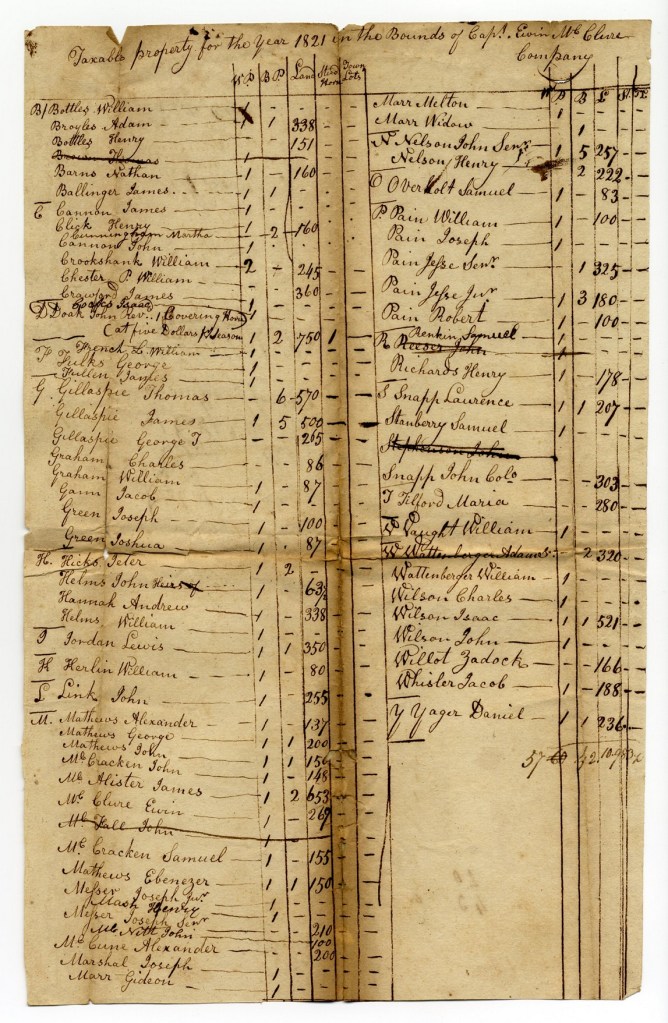 Taxable property for the Year 1821 in the Bounds of Capt. Ewin Mc Clure
Company
W P B P Land Stud Horse Town Lots
B Bottles William
Broyles Adam 1 1 338
Bottles Henry 151
Brown Thomas
Barns Nathan 1 160
Ballinger James 1 1
C Cannon James 1
Click Henry 1 160
Cunningham Martha 2
Cannon John 1
Crookshank William 2 245
Chester P. William 360
Crawford James 1
Isaac
D Doak John Rev. 1 Covering Horse
(at five Dollars pr Season 1 2 750 1
F French L. William 1
Fulks George 1
Fullin James 1
G. Gillaspie Thomas 6 570
Gillaspie James 1 5 500
Gillaspie George T 205
Graham Charles 1 86
Graham William 1 87
Gann Jacob 1
Green Joseph 1 100
Green Joshua 1 87
H. Hicks Peter 2
Helms John Heirs of 63
Hannah Andrew 1 338
Helms William 1
J Jordan Lewis 1 1 350
H Herlin William 1 80
L Link John 255
M. Mathews Alexander 1 137
Mathews George 1 1 200
Mathews John 1 1 156
Mc Cracken John 1 148
Mc Alister James 1 2 653
Mc Clure Ewin 1 267
Mc Fall John
Mc Cracken Samuel 1 155
Mathews Ebenezer 1 1 150
Messer Joseph Junr 1
Mash Henry
Messer Joseph Senr
Mc Nitt John 210
Mc Cune Alexander 100
Marshal Joseph 200
Marr Gideon 1
W P B L St
Marr Melton 1
Marr Widow 1
N Nilson John Senr 1 5 257
Nilson Henry 2 222
O Overholt Samuel 1 83
P Pain William 1 100
Pain Joseph 1
Pain Jesse Senr 1 325
Pain Jesse Junr 1 3 180
Pain Robert 1 100
Renkin Samuel
R Reeser John
Richards Henry 1 178
S Snapp Laurence 1 1 207
Stanberry Samuel 1
Stephenson John
Snapp John Colo 303
T Tilford Maria 280
V Vaught William 1
W Wattenberger Adam 2 320
Wattenberger William 1
Wilson Charles 1
Wilson Isaac 1 1 521
Wilson John 1
Willot Zadock 166
Whisler Jacob 1 188
Y Yager Daniel 1 1 236
57 42